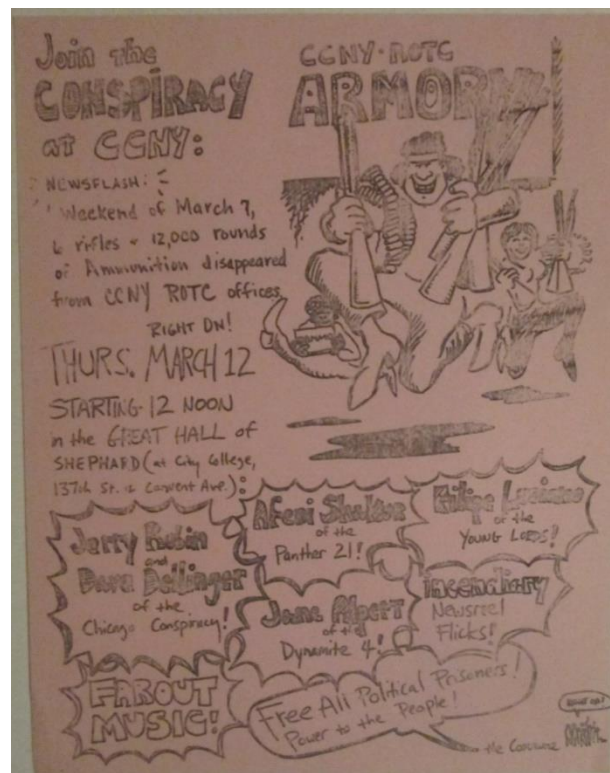 Join the
CONSPIRACY
at CCNY:
NEWSFLASH:
Weekend of March 7,
6 rifles + 12,000 rounds
of Ammunition disappeared
from CCNY ROTC offices
RIGHT ON!
THURS. MARCH 12
STARTING 12 NOON
in the GREAT HALL of
SHEPHARD (at City College,
137th St. & Convent Ave.):
CCNY-ROTC
ARMORY
Jerry Rubin
and
Dave Dellinger
of the
Chicago Conspiracy!
Afeni Shakur
of the
Panther 21!
Felipe Luciano
of the
YOUNG LORDS!
Jane Alpert
of the
Dynamite 4!
Incendiary
Newsreel
Flicks!
FAROUT
MUSIC!
Free All Political Prisoners!
Power to the People!